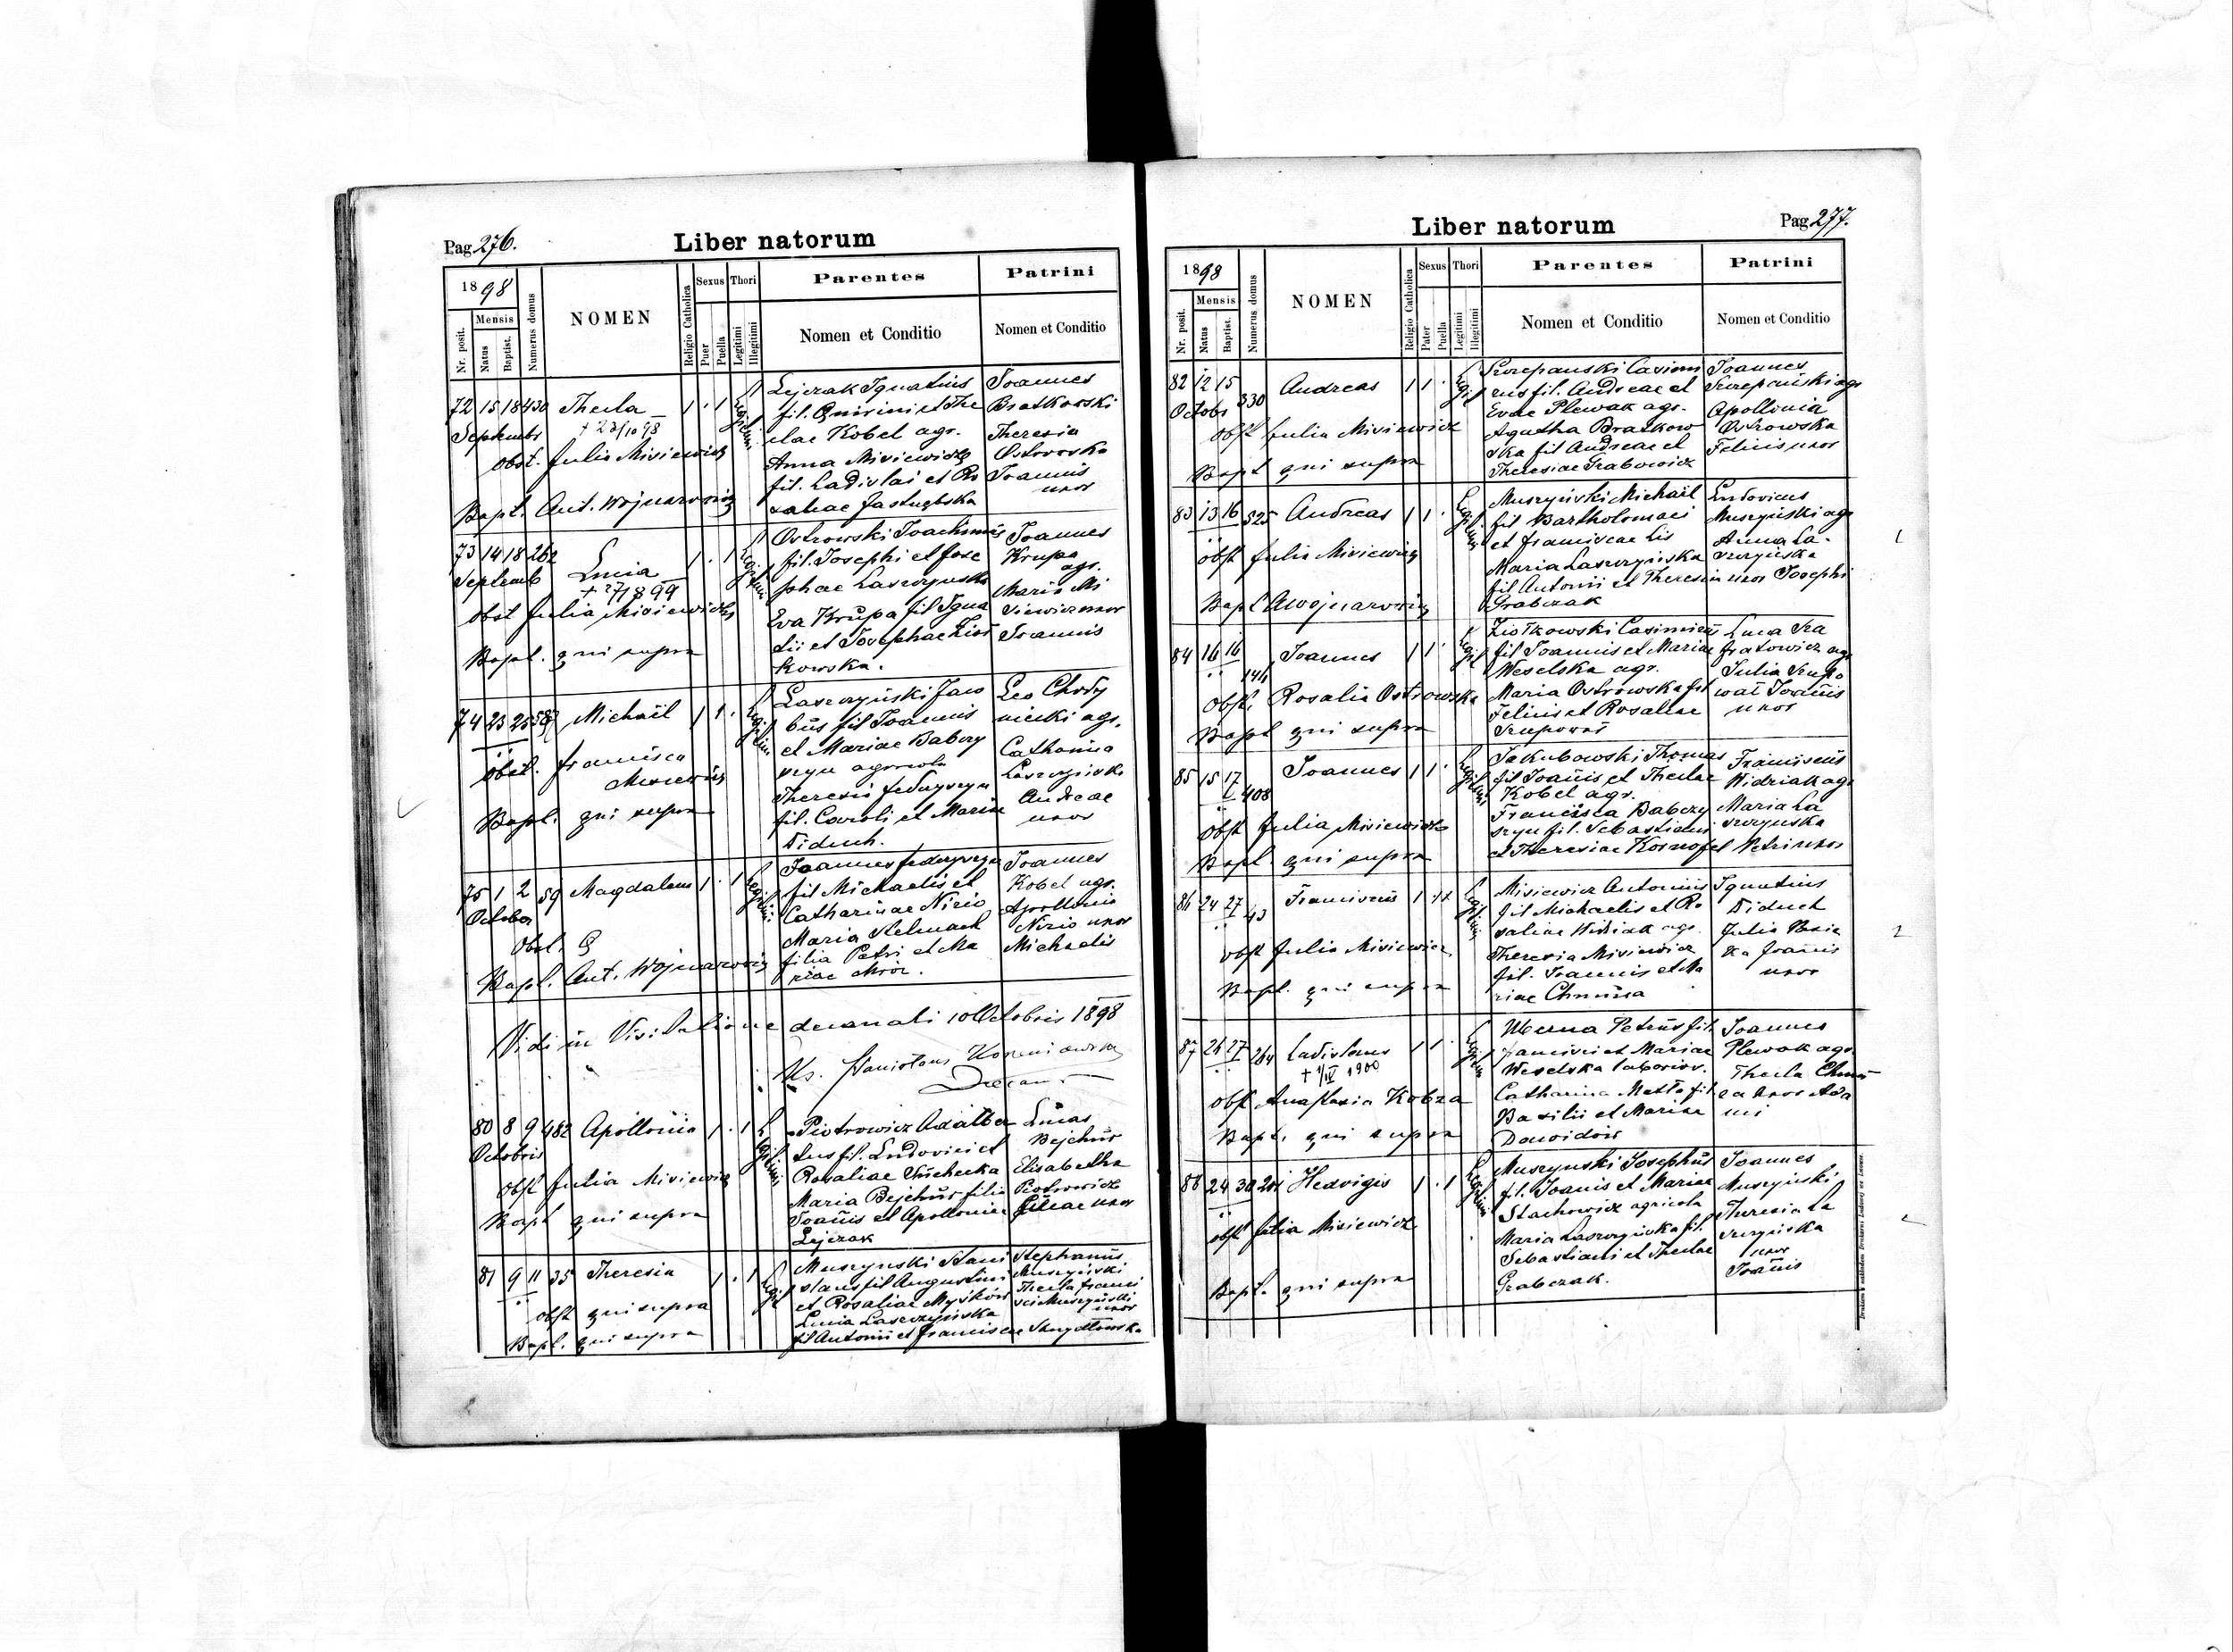 Pag 276.
Liber natorum
1898
Nr. posit.
Mensis
Natus
Baptist.
Numerus domus
NOMEN
Religio Catholica
Sexus
Puer
Puella
Thori
Legitimi
Illegitimi
Parentes
Nomen et Conditio
Patrini
Nomen et Conditio
72 15 18 430 Thecla 1 . 1 Legitimi
+ 23/10 98
Septembr
Obst. Julia Misiewicz
Bapt. Ant. Wojnarowicz
Lejczak Ignatius
fil. Quirini et The
clae Kobel agr.
Anna Misiewicz
fil. Ladislai et Ro
saliae Jastrzębska
Joannes
Bratkowski
Theresia
Ostrowska
Joannis
uxor
73 14 18 262 Lucia 1 . 1 Legitimi
+ 27/1 899
Septemb
Obst Julia Misiewicz
Bapt. qui supra
Ostrowski Joachimus
fil. Josephi et Jose
phae Laszczynska
Eva Krupa fil Igna
tii et Josephae Ziół
kowska.
Joannes
Krupa
agr.
Maria Mi
siewicz uxor
Joannis
74 23 25 587 Michaël 1 1 . Legitimi
Obst. Francisca
Misiewicz
Bapt. qui supra
Laszczyński Jaco
bus fil Joannis
et Mariae Babczy
szyn agricola
Theresia Fedczyszyn
fil. Caroli et Mariae
Diduch.
Leo Chody
niecki agr.
Catharina
Laszczyńska
Andreae
uxor
75 1 2 59 Magdalena 1 . 1 Legitimi
October
Obst.
Bapt. Ant. Wojnarowicz
Joannes Fedczyszyn
fil Michaelis et
Catharinae Nizio
Maria Kelmach
filia Petri et Ma
riae Mróz.
Joannes
Kobel agr.
Apollonia
Nizio uxor
Michaelis
Vidi in Visitatione decanali 10 Octobris 1898
Ks. Stanislaus
Decanus
80 8 9 482 Apollonia 1 . 1 Legitimi
Octobris
Obst Julia Misiewicz
Bapt qui supra
Piotrowicz Adalber
tus fil. Ludovici et
Rosaliae
Maria Bejchur filia
Joannis et Apolloniae
Lejczak
Lucas
Bejchur
Elisabetha
Piotrowicz
uxor
81 9 11 35 Theresia 1 . 1 Legit
obst qui supra
Bapt. qui supra
Muszynski Stani
slaus fil Augustini
et Rosaliae Myśków
Lucia Laszczyńska
fil Antonii et Franciscae
Stephanus
Muszyński
Thecla Franci
sci Muszyński
uxor
Pag 277.
Liber natorum
1898
Nr. posit.
Mensis
Natus
Baptist.
Numerus domus
NOMEN
Religio Catholica
Sexus
Pater
Puella
Thori
Legitimi
Illegitimi
Parentes
Nomen et Conditio
Patrini
Nomen et Conditio
82 12 15 330 Andreas 1 1 . Legit
Octobr
Obst Julia Misiewicz
Bapt qui supra
Szczepanski Casimi
rus fil. Andreae et
Evae Plewak agr.
Agatha Bratkow
ska fil Andreae et
Theresiae Grabowicz
Joannes
Szczepański agr
Apollonia
Ostrowska
Felicis uxor
83 13 16 525 Andreas 1 1 . Legitimi
Obst Julia Misiewicz
Bapt A Wojnarowicz
Muszyński Michaël
fil Bartholomaei
et Franciscae Lis
Maria Laszczyńska
fil Antonii et Theresia
Grabczak
Ludovicus
Muszyński agr
Anna La-
szczyńska
uxor Josephi
84 16 16 144 Joannes 1 1 . Legit
Obst. Rosalia Ostrowska
Bapt qui supra
Ziołkowski Casimirus
fil Joannis et Mariae
Weselska agr.
Maria Ostrowska fil
Felicis et Rosaliae
Szupowas
Luca Sza
fratowicz agr
Julia Szupo
wał Joannis
uxor
85 15 17 408 Joannes 1 1 . Legitimi
Obst Julia Misiewicz
Bapt. qui supra
Jakubowski Thomas
fil Joannis et Theclae
Kobel agr.
Francisca Babczy
szyn fil. Sebastiani
et Theresiae Kosnofel
Franciscus
Widziak agr
Maria La
szczynska
Petri uxor
86 24 27 43 Franciscus 1 1 Legitimi
obst Julia Misiewicz
Bapt. qui supra
Misiewicz Antonius
fil Michaelis et Ro
saliae Widziak agr.
Theresia Misiewicz
fil. Joannis et Ma
riae Chmura
Ignatius
Diduch
Julia
Joannis
uxor
87 26 27 264 Ladislaus 1 1 . Legitim
+ 1/IV 1900
Obst Anastasia Kobza
Bapt. qui supra
Petrus fil
Francisci et Mariae
Weselska laborior.
Catharina fil
Basilii et Mariae
Dawidois
Joannes
Plewak agr.
Thecla Chmu
ra uxor Ada
mi
88 24 30 201 Hedvigis 1 . 1 Legitimi
obst Julia Misiewicz
Bapt. qui supra
Muszynski Josephus
fil. Joannis et Mariae
Stachowicz agricola
Maria Laszczyńska fil.
Sebastiani et Theclae
Grabczak.
Joannes
Muszyński
Theresia La
szczyńska
uxor
Joannis